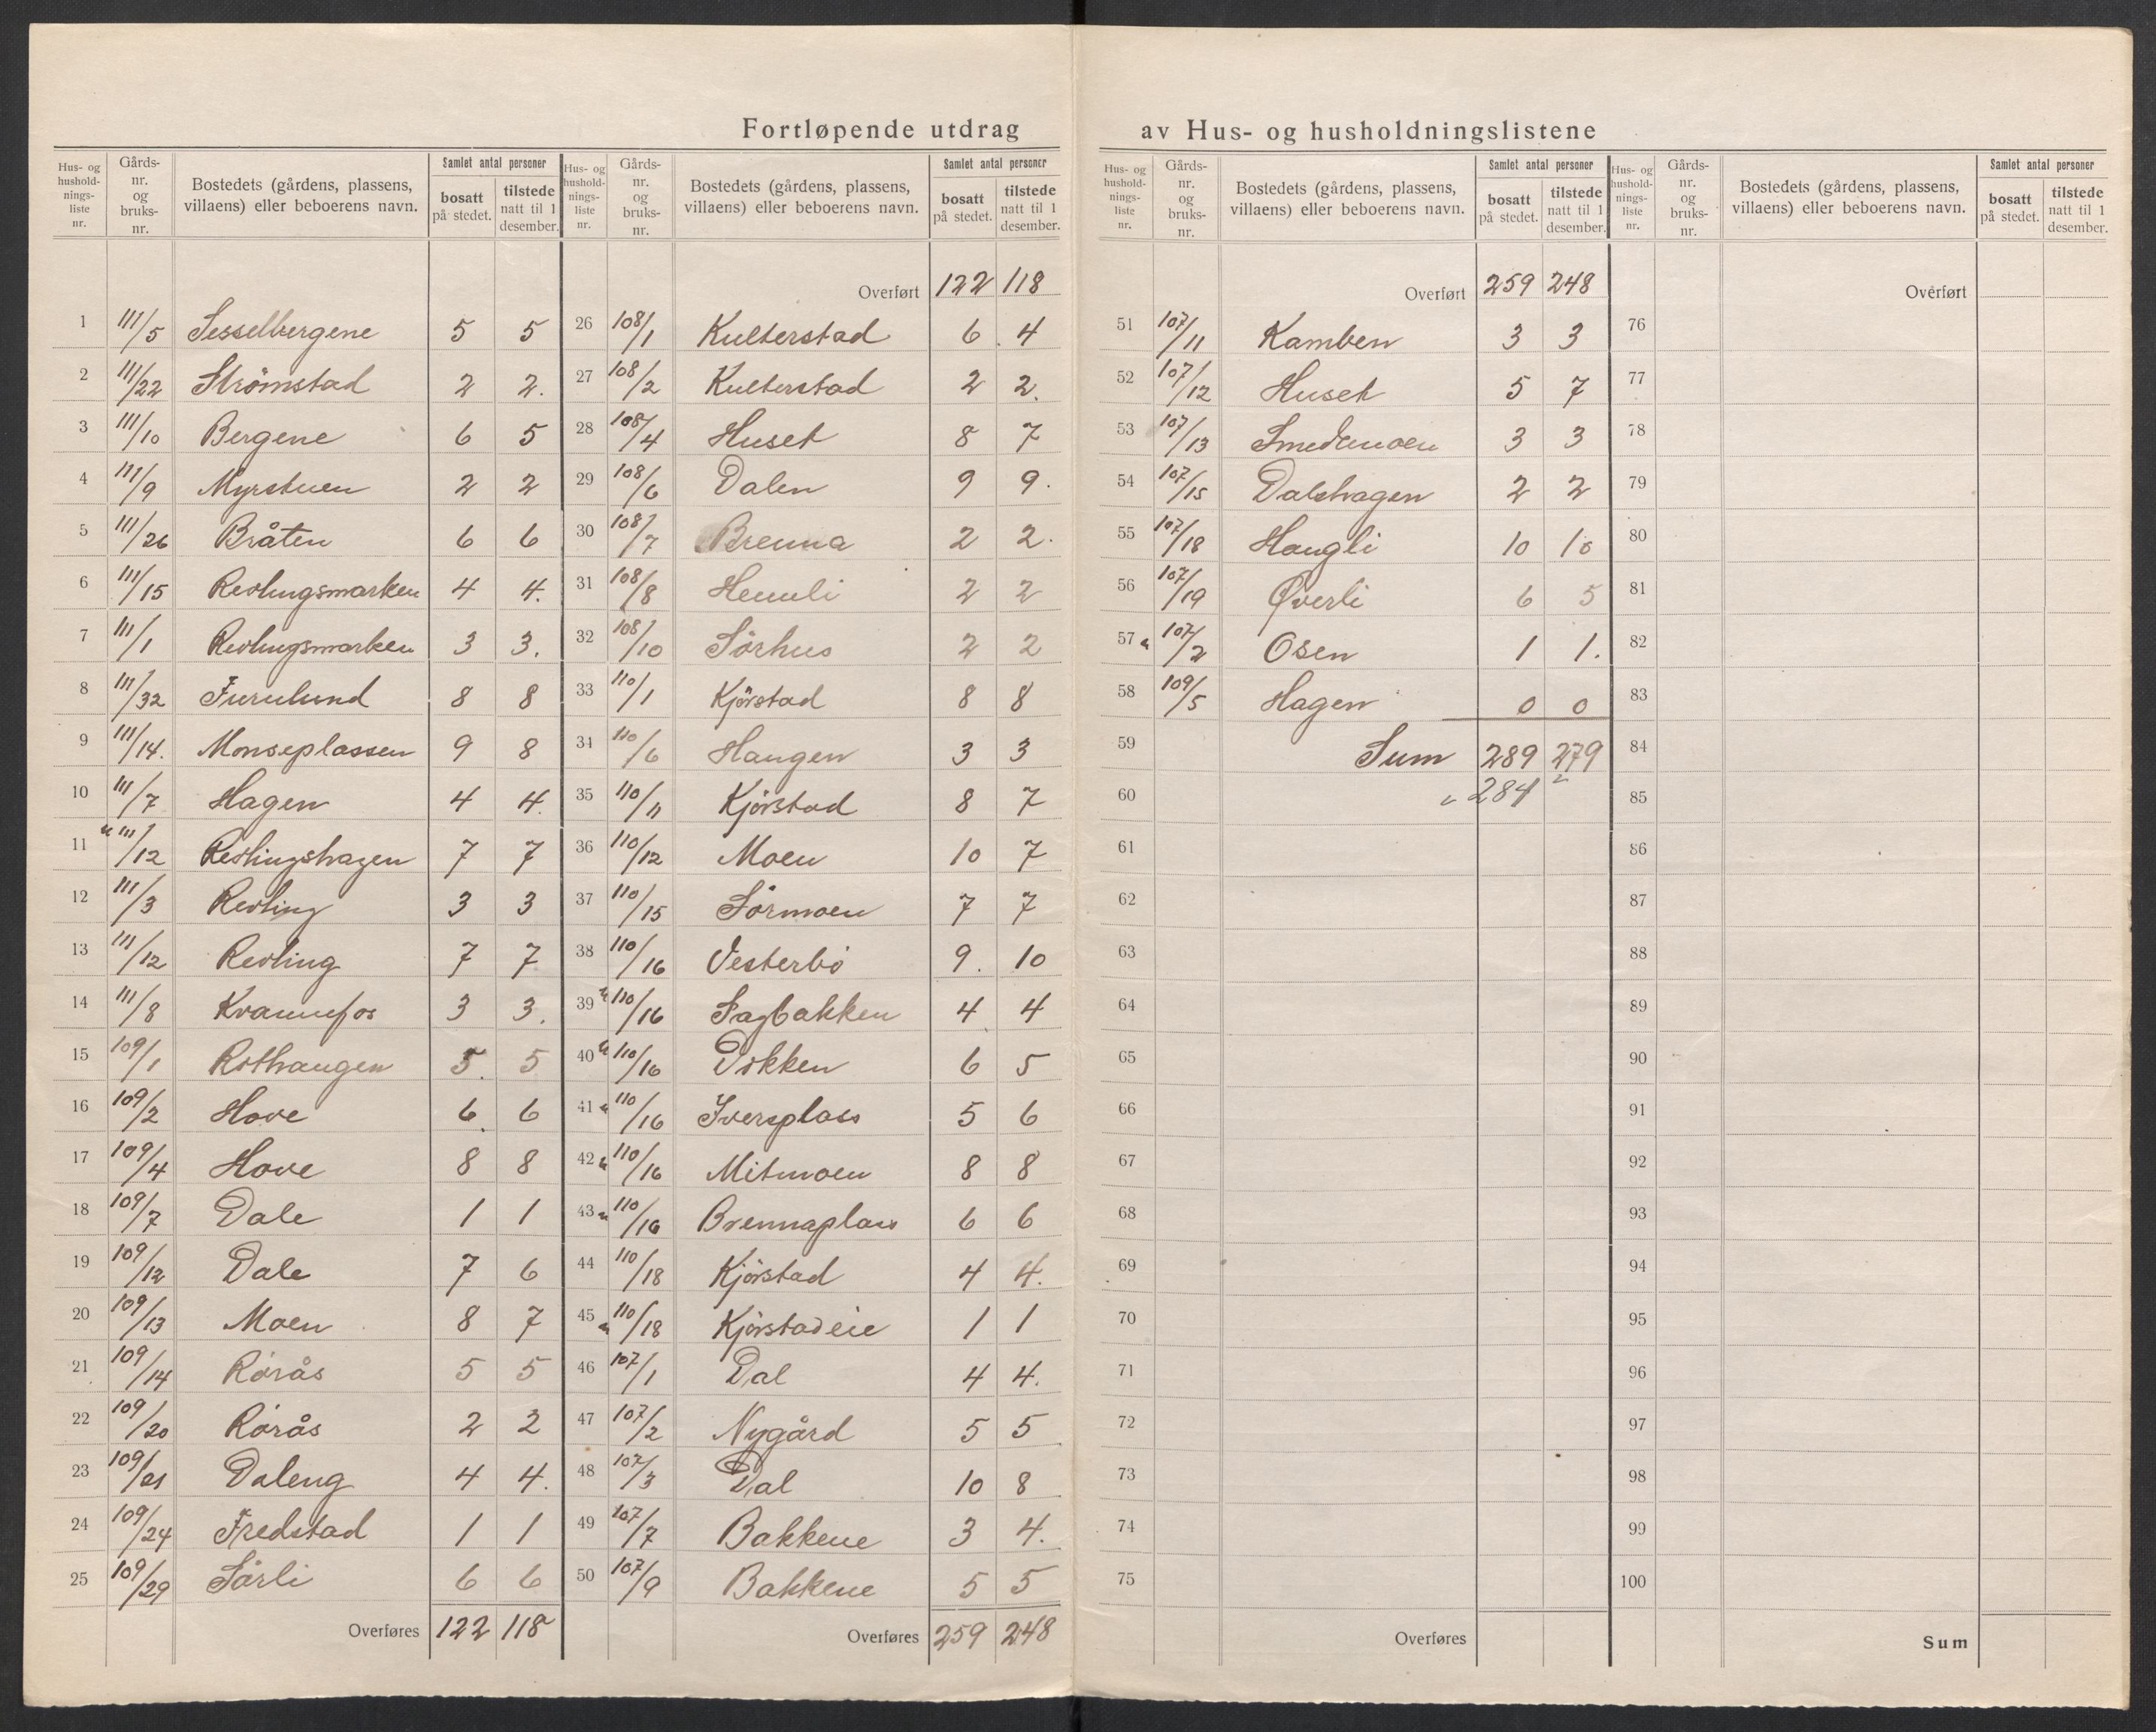 Fortløpende utdrag av Hus- og husholdningslistene
Hus- og husholdnings-liste nr. Gårds-nr. og bruks-nr. Bostedets (gårdens, plassens, villaens) eller beboerens navn. Samlet antal personer bosatt på stedet. tilstede natt til 1 desember.
1 111/5 Sesselbergene 5 5
2 111/22 Strömstad 2 2.
3 111/10 Bergene 6 5
4 111/9 Myrstuen 2 2
5 111/26 Bråten 6 6
6 111/15 Revlingsmarken 4 4.
7 111/1 Revlingsmarken 3 3.
8 111/32 Furulund 8 8
9 111/14. Monseplassen 9 8
10 111/7 Hagen 4 4.
11 u 111/12 Revlingshagen 7 7
12 111/3 Revling 3 3
13 111/12 Revling 7 7
14 111/8 Kvannefos 3 3.
15 109/1 Rothaugen 5. 5
16 109/2 Hove 6. 6
17 109/4 Hove 8 8
18 109/7 Dale 1 1
19 109/12 Dale 7 6
20 109/13 Moen 8 7
21 109/14 Rørås 5 5
22 109/20 Rørås 2 2
23 109/21 Daleng 4 4.
24 109/24 Fredstad 1 1
25 109/29 Sörli 6 6
Overføres 122 118
Hus- og husholdnings-liste nr. Gårds-nr. og bruks-nr. Bostedets (gårdens, plassens, villaens) eller beboerens navn. Samlet antal personer bosatt på stedet. tilstede natt til 1 desember.
Overført 122 118
26 108/1 Kulterstad 6. 4
27 108/2 Kulterstad 2 2.
28 108/4 Huset 8 7
29 108/6 Dalen 9 9.
30 108/7 Brenna 2 2.
31 108/8 Heimli 2 2
32 108/10 Sörhus 2 2
33 110/1 Kjörstad 8 8
34 110/6 Haugen 3 3
35 110/11 Kjörstad 8 7
36 110/12 Moen 10 7
37 110/15 Sörmoen 7 7
38 110/16 Vesterbö 9. 10
39 u 110/16 Sagbakken 4 4
40 u 110/16 Dokken 6 5
41 u 110/16 Iversplass 5 6
42 u 110/16 Mitmoen 8 8
43 u 110/16 Brennaplass 6 6
44 110/18 Kjörstad 4 4.
45 u 110/18 Kjörstadeie 1 1
46 107/1 Dal 4 4.
47 107/2 Nygård 5 5
48 107/3 Dal 10 8
49 107/7 Bakkene 3 4.
50 107/9 Bakkene 5 5
Overføres 259 248
Hus- og husholdnings-liste nr. Gårds-nr. og bruks-nr. Bostedets (gårdens, plassens, villaens) eller beboerens navn. Samlet antal personer bosatt på stedet. tilstede natt til 1 desember.
Overført 259 248
51 107/11 Kamben 3 3
52 107/12 Huset 5 7
53 107/13 Smedemoen 3 3
54 107/15 Dalshagen 2 2
55 107/18 Haugli 10 10
56 107/19 Øverli 6 5
57 u 107/2 Osen 1 1.
58 109/5 Hagen 0 0
59 Sum 289 279
60 284
61
62
63
64
65
66
67
68
69
70
71
72
73
74
75
Overføres
Hus- og husholdnings-liste nr. Gårds-nr. og bruks-nr. Bostedets (gårdens, plassens, villaens) eller beboerens navn. Samlet antal personer bosatt på stedet. tilstede natt til 1 desember.
Overført
76
77
78
79
80
81
82
83
84
85
86
87
88
89
90
91
92
93
94
95
96
97
98
99
100
Sum